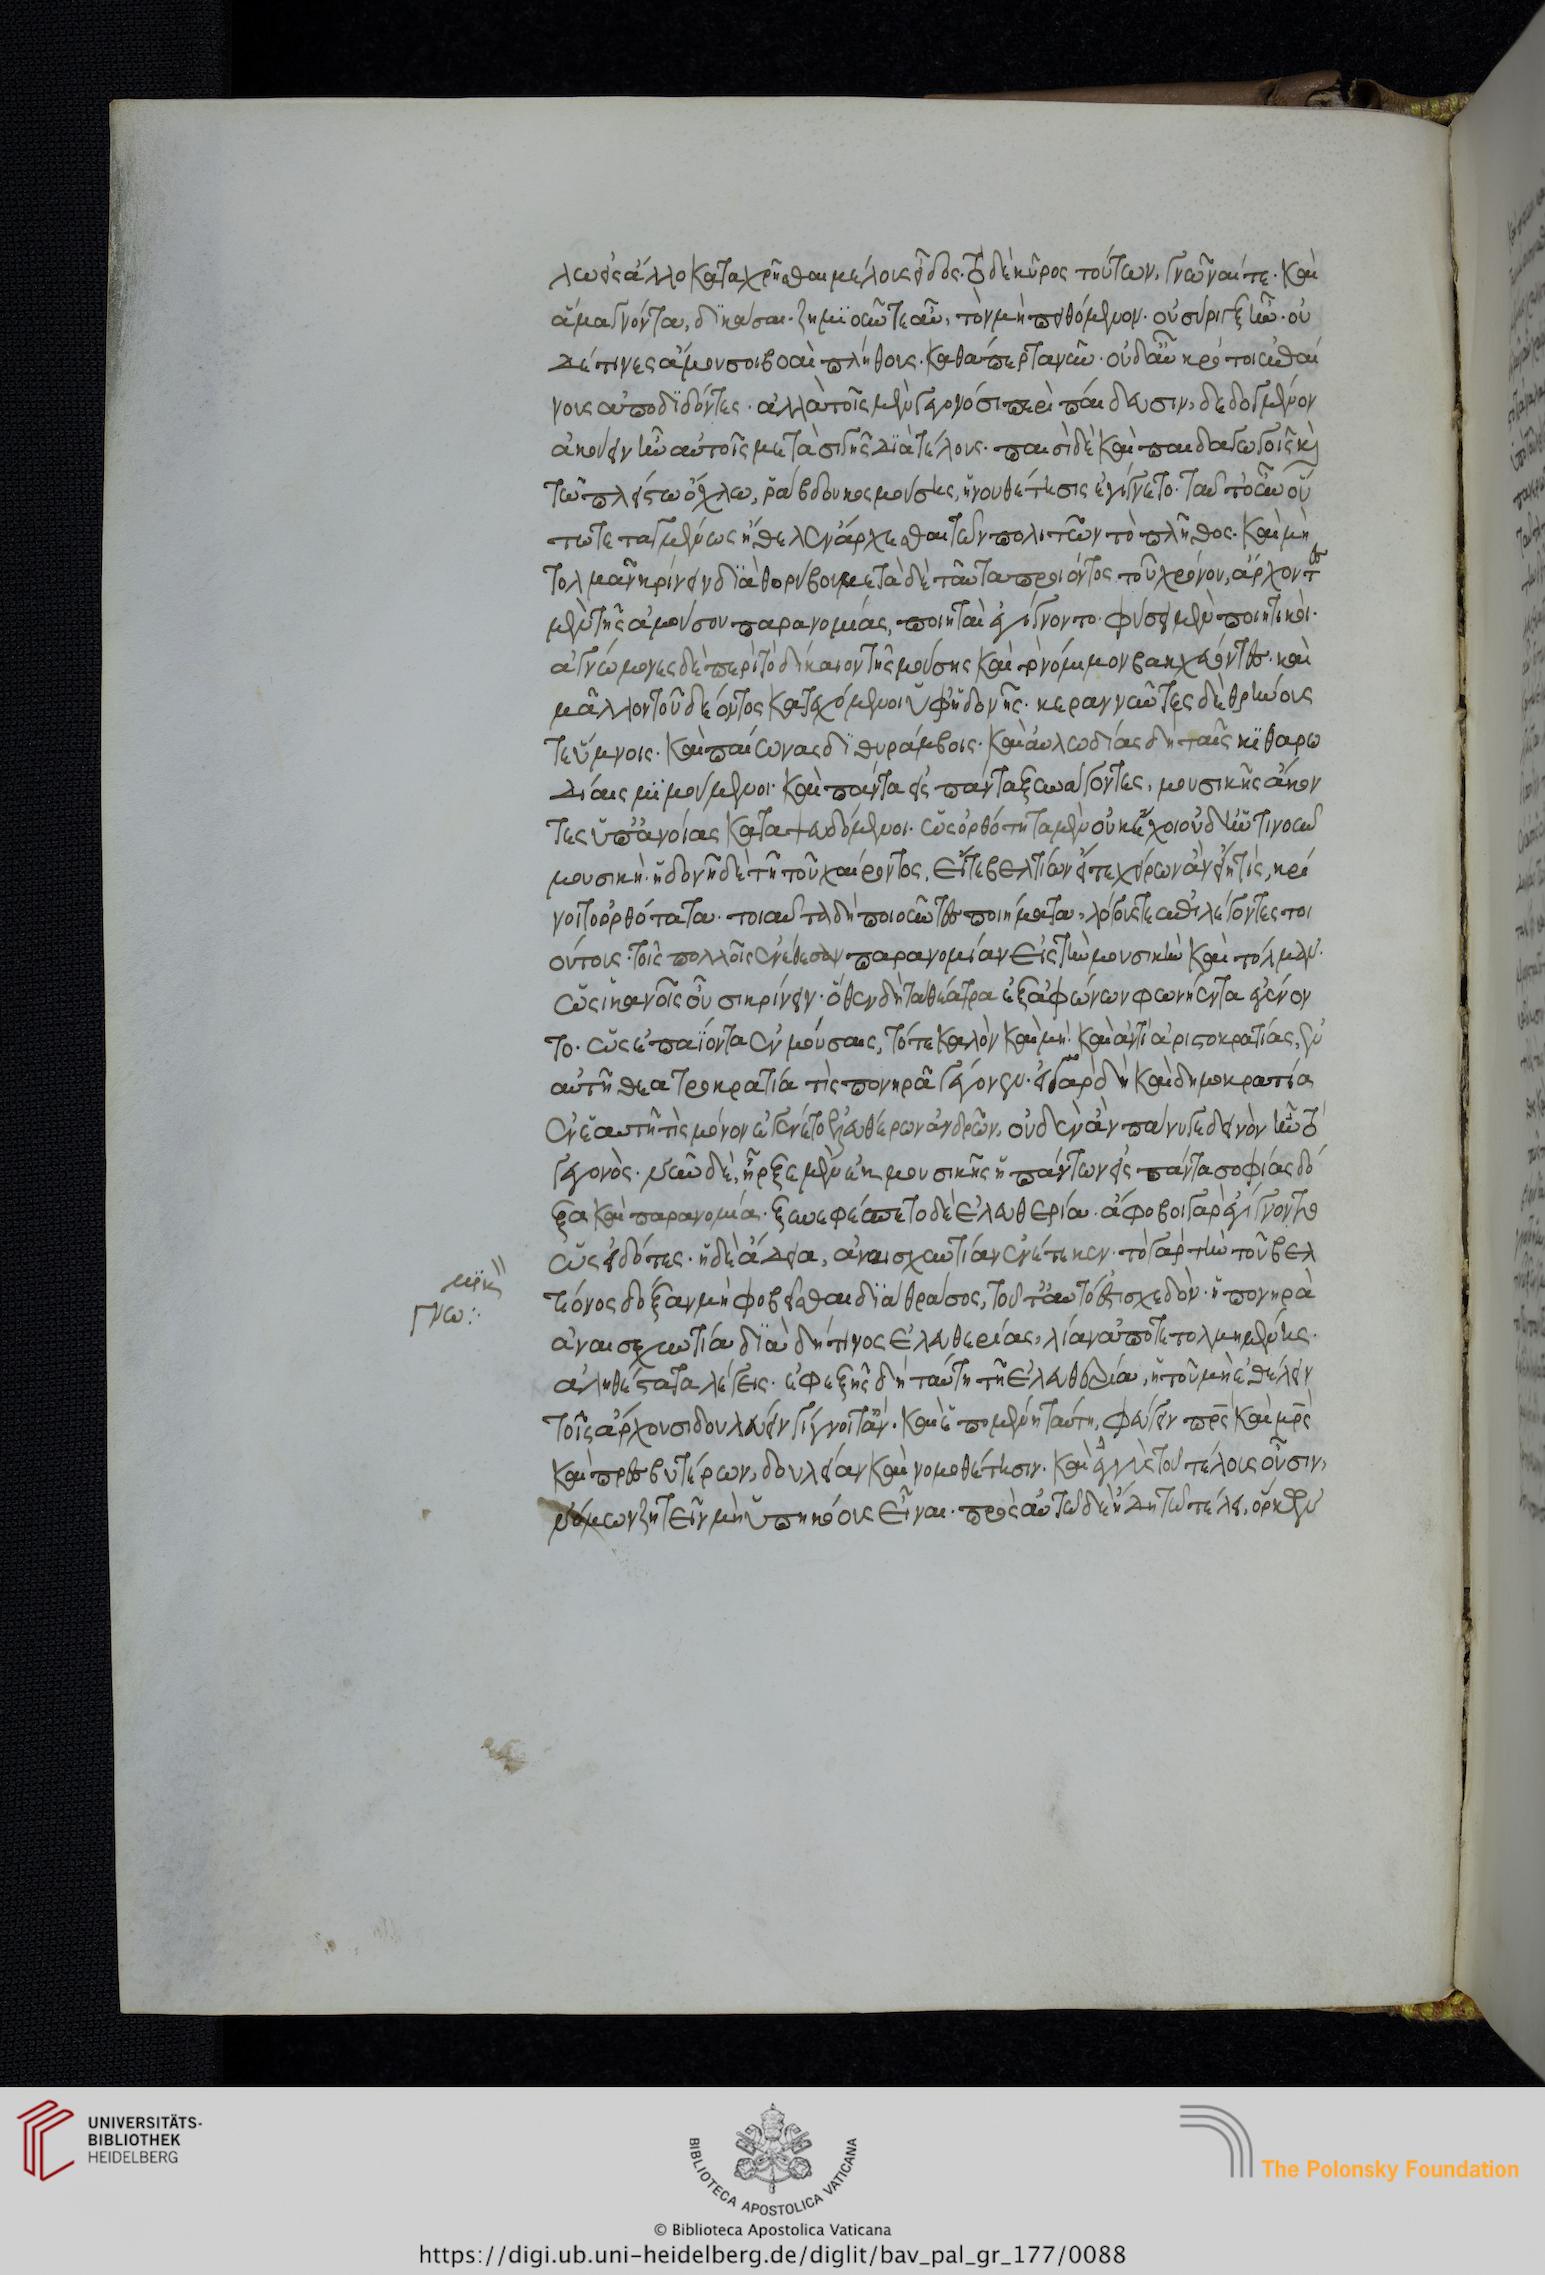 λων εἰς ἄλλο καταχρῆσθαι μέλους εἶδος. τὸ δὲ κῦρος τούτων, γνῶναί τε. καὶ
ἅμα γνόντα, δικάσαι. ζημιοῦν τε αὖ, τὸν μὴ πειθόμενον. οὐ σύριγξ ἦν. οὐ
δέ τινες ἄμουσοι βοαὶ πλήθους. καθάπερ τανῦν. οὐδ' αὖ κρότοι ἐπαί
νους ἀποδιδόντες. ἀλλὰ τοῖς μὲν γεγονόσι περὶ παίδευσιν, δεδογμένον
ἀκούειν ἦν αὐτοῖς μετὰ σιγῆς διὰ τέλους. παισὶ δὲ καὶ παιδαγωγοῖς κὶ
τῶ πλείστω ὄχλω, ῥάβδου κοσμούσης, ἡ νουθέτησις ἐγίγνετο. ταῦτ' οὖν οὕ
τω τεταγμένως ἤθελεν ἄρχεσθαι τῶν πολιτῶν τὸ πλῆθος. καὶ μὴ
τολμᾶν κρίνειν διὰ θορύβου. μετὰ δὲ ταῦτα προιόντος τοῦ χρόνου, ἄρχοντες
μὲν τῆς ἀμούσου παρανομίας, ποιηταὶ ἐγίγνοντο. φύσει μὲν ποιητικοὶ.
ἀγνώμονες δὲ περὶ τὸ δίκαιον τῆς μούσης καὶ τὸ νόμιμον βακχεύοντες. καὶ
μᾶλλον τοῦ δέοντος κατεχόμενοι ὑφ' ἡδονῆς. κεραννῦντες δὲ θρήνους
τε ὕμνοις. καὶ παίωνας διθυράμβοις. καὶ αὐλωδίας δὴ ταῖς κιθαρω
δίαις μιμούμενοι. καὶ πάντα εἰς πάντα ξυνάγοντες, μουσικῆς ἄκον
τες ὑπ' ἀνοίας καταψευδόμενοι. ὡς ὀρθότητα μὲν οὐκ ἔχοι οὐδ' ἡντινοῦν
μουσικὴ. ἡδονῆ δὲ τῆ τοῦ χαίροντος, εἴτε βελτίων εἴτε χείρων ἂν εἴη τὶς, κρί
νοιτο ὀρθότατα. τοιαῦτα δὴ ποιοῦντες ποιήματα, λόγους τε ἐπιλέγοντες τοι
ούτους. τοῖς πολλοῖς ἐνέθεσαν παρανομίαν εἰς τὴν μουσικὴν καὶ τόλμαν.
ὡς ἱκανοῖς οὖσι κρίνειν. ὅθεν δὴ τὰ θέατρα ἐξ ἀφώνων φωνήεντα ἐγένον
το. ὡς ἐπαΐοντα ἐν μούσαις, τό τε καλὸν καὶ μή. καὶ ἀντὶ ἀριστοκρατίας, ἐν
αὐτῆ θεατροκρατία τὶς πονηρὰ γέγονεν. εἰ γὰρ δὴ καὶ δημοκρατία
ἐν ἑαυτῆ τὶς μόνον ἐγένετο ἐλευθέρων ἀνδρῶν, οὐδὲν ἂν πάνυ γε δεινὸν ἦν τὸ
γεγονὸς. νῦν δὲ, ἦρξε μὲν ἐκ μουσικῆς ἡ πάντων εἰς πάντα σοφίας δό
ξα καὶ παρανομία. ξυνεφέσπετο δὲ ἐλευθερία. ἄφοβοι γὰρ ἐγίγνοντο
ὡς εἰδότες. ἡ δὲ ἄδεια, ἀναισχυντίαν ἐνέτεκεν. τὸ γὰρ τὴν τοῦ βελ
τίονος δόξαν μὴ φοβεῖσθαι διὰ θράσος, τοῦτ' αὐτό ἐστι σχεδὸν. ἡ πονηρὰ
ἀναισχυντία διὰ δή τινος ἐλευθερίας, λίαν ἀποτετολμημένης.
ἀληθέστατα λέγεις. ἐφεξῆς δὴ ταύτη τῆ ἐλευθερία, ἡ τοῦ μὴ ἐθέλειν
τοῖς ἄρχουσι δουλεύειν γίγνοιτ' ἄν. καὶ ἑπομένη ταύτη, φεύγειν πρς καὶ μρς
καὶ πρεσβυτέρων, δουλείαν καὶ νομοθέτησιν. καὶ ἐγγὺς τοῦ τέλους οὖσιν,
νόμων ζητεῖν μὴ ὑπηκόους εἶναι. πρὸς αὐτῶ δὲ ἤδη τῶ τέλει, ὅρκων